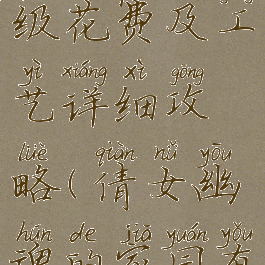 级花费及工
yì xiáng xì gōng
艺详细攻
lüè qiàn nǚ yōu
略(倩女幽
hún de jiā yuán yǒu
魂的家园有